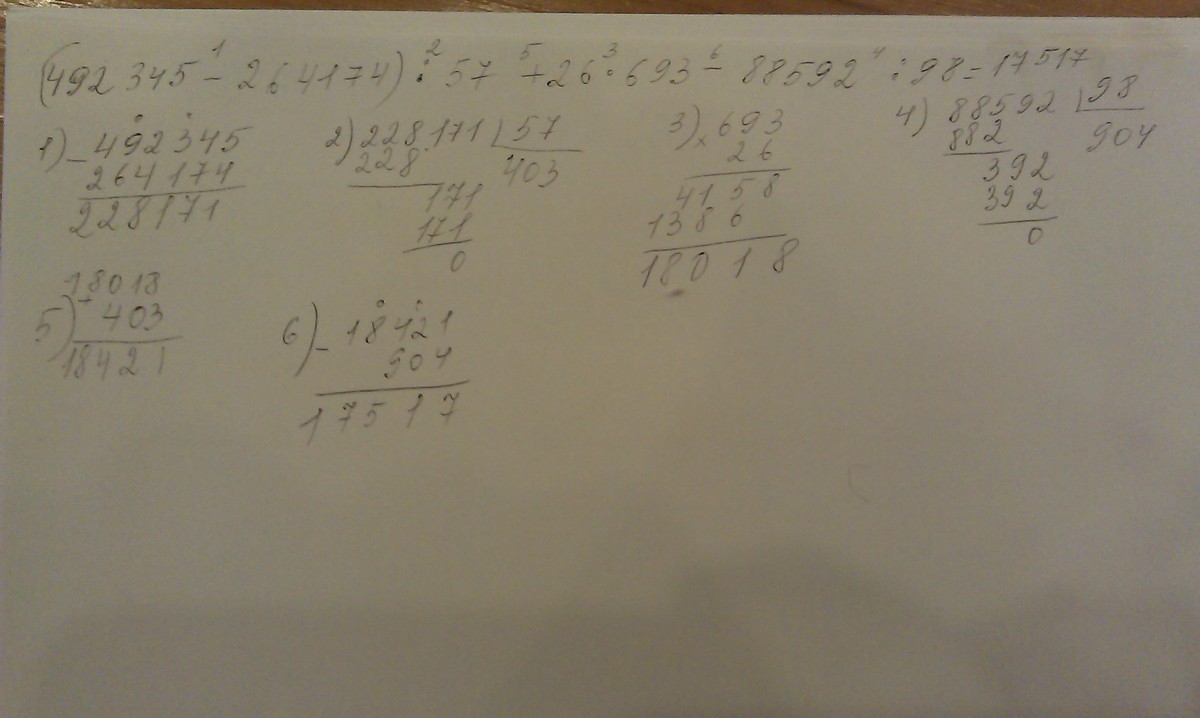 (492 345 - 264174) : 57 + 26 · 693 - 88592 : 98 = 17517
1 2 5 3 6 4
1) - 492345
264174
228171
2) 228171 | 57
228 403
171
171
0
3) × 693
26
4158
1386
18018
4) 88592 | 98
882 904
392
392
0
5) + 18018
403
18421
6) - 18421
904
17517